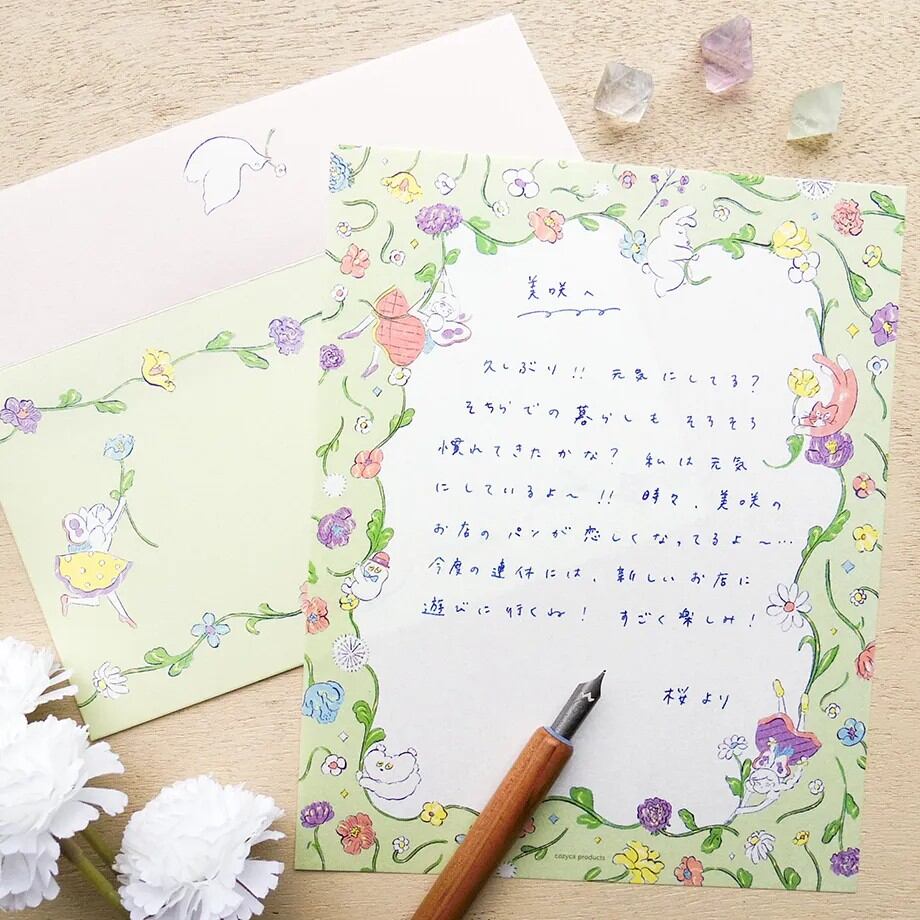 美咲へ
久しぶり!! 元気にしてる?
そちらでの暮らしもそろそろ
慣れてきたかな? 私は元気
にしているよ〜!! 時々、美咲の
お店のパンが恋しくなってるよ〜…
今度の連休には、新しいお店に
遊びに行くね! すごく楽しみ!
桜より
cozyca products